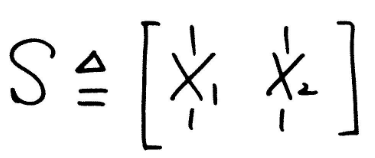 S ≜ [ X₁ X₂ ]